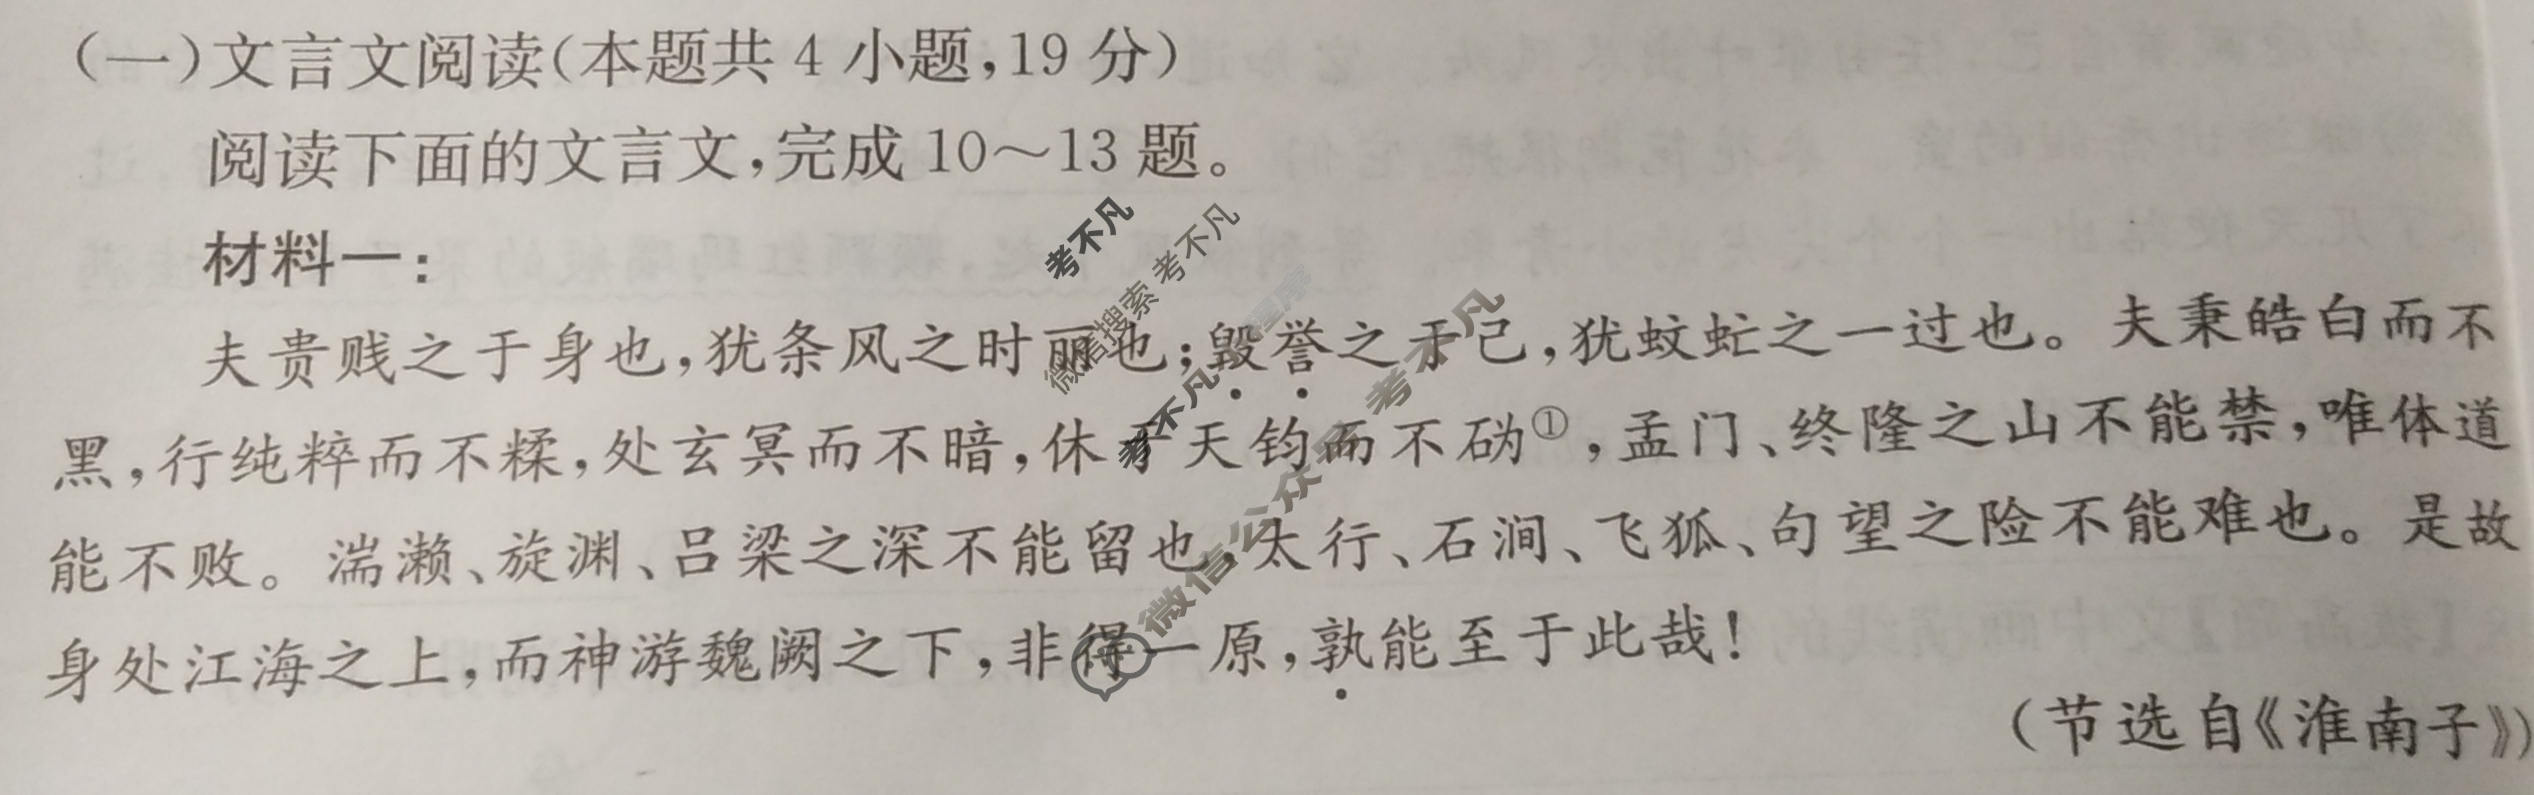 (一)文言文阅读(本题共4小题,19分)
阅读下面的文言文,完成10～13题。
材料一:
夫贵贱之于身也,犹条风之时丽也;毁誉之于己,犹蚊虻之一过也。夫秉皓白而不
黑,行纯粹而不糅,处玄冥而不暗,休于天钧而不䃣①,孟门、终隆之山不能禁,唯体道
能不败。湍濑、旋渊、吕梁之深不能留也,太行、石涧、飞狐、句望之险不能难也。是故
身处江海之上,而神游魏阙之下,非得一原,孰能至于此哉!
(节选自《淮南子》)
考不凡
微信搜索 考不凡
考不凡
微信公众号 考不凡